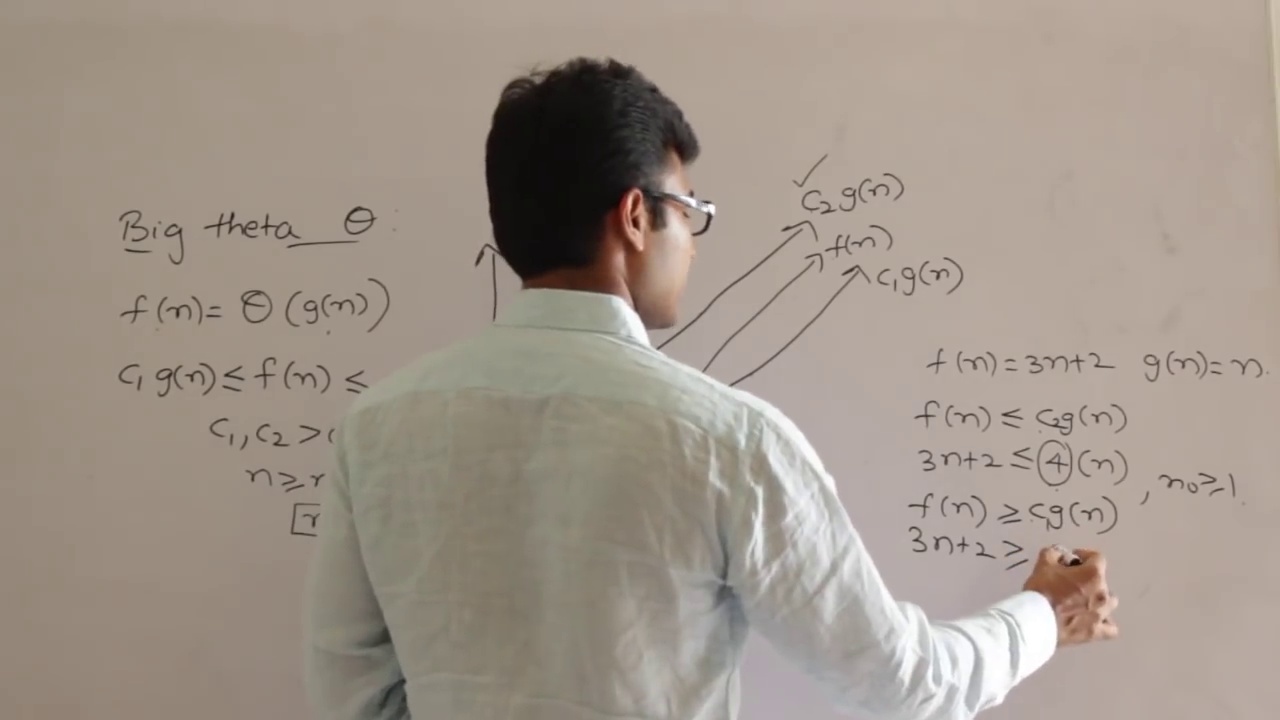 Big theta Θ :
f(n) = Θ (g(n))
c₁ g(n) ≤ f(n) ≤
c₁, c₂ >
n ≥
c₂ g(n)
f(n)
c₁g(n)
f(n) = 3n+2 g(n) = n.
f(n) ≤ c₂g(n)
3n+2 ≤ 4 (n)
, n₀ ≥ 1
f(n) ≥ c₁g(n)
3n+2 ≥